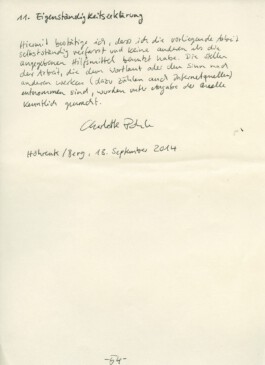 11. Eigenständigkeitserklärung
Hiermit bestätige ich, dass ich die vorliegende Arbeit
selbstständig verfasst und keine anderen als die
angegebenen Hilfsmittel benutzt habe. Die Stellen
der Arbeit, die dem Wortlaut oder dem Sinn nach
anderen Werken (dazu zählen auch Internetquellen)
entnommen sind, wurden unter Angabe der Quelle
kenntlich gemacht.
Charlotte
/Berg, 18. September 2014
-54-